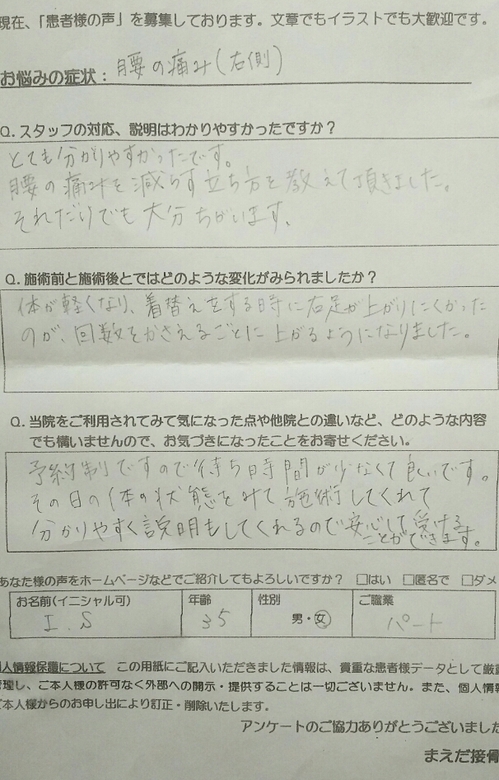 現在、「患者様の声」を募集しております。文章でもイラストでも大歓迎です。
お悩みの症状：腰の痛み(右側)
Q. スタッフの対応、説明はわかりやすかったですか？
とても分かりやすかったです。
腰の痛みを減らす立ち方を教えて頂きました。
それだけでも大分ちがいます。
Q. 施術前と施術後とではどのような変化がみられましたか？
体が軽くなり、着替えをする時に右足が上がりにくかった
のが、回数をかさえるごとに上がるようになりました。
Q. 当院をご利用されてみて気になった点や他院との違いなど、どのような内容
でも構いませんので、お気づきになったことをお寄せください。
予約制ですので待ち時間が少なくて良いです。
その日の体の状態をみて施術してくれて
分かりやすく説明もしてくれるので安心して受ける
ことができます。
あなた様の声をホームページなどでご紹介してもよろしいですか？ □はい □匿名で □ダメ
お名前(イニシャル可) 年齢 性別 ご職業
I.S 35 男・女 パート
個人情報保護について この用紙にご記入いただきました情報は、貴重な患者様データとして厳重
管理し、ご本人様の許可なく外部への開示・提供することは一切ございません。また、個人情報
ご本人様からのお申し出により訂正・削除いたします。
アンケートのご協力ありがとうございました
まえだ接骨